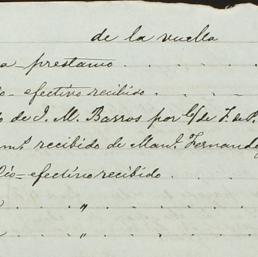 de la vuelta
a prestamo
o- efectivo recibido
o de J. M. Barros por c/ de F. de P.
mo, recibido de Manl. Fernande
io- efectivo recibido
"